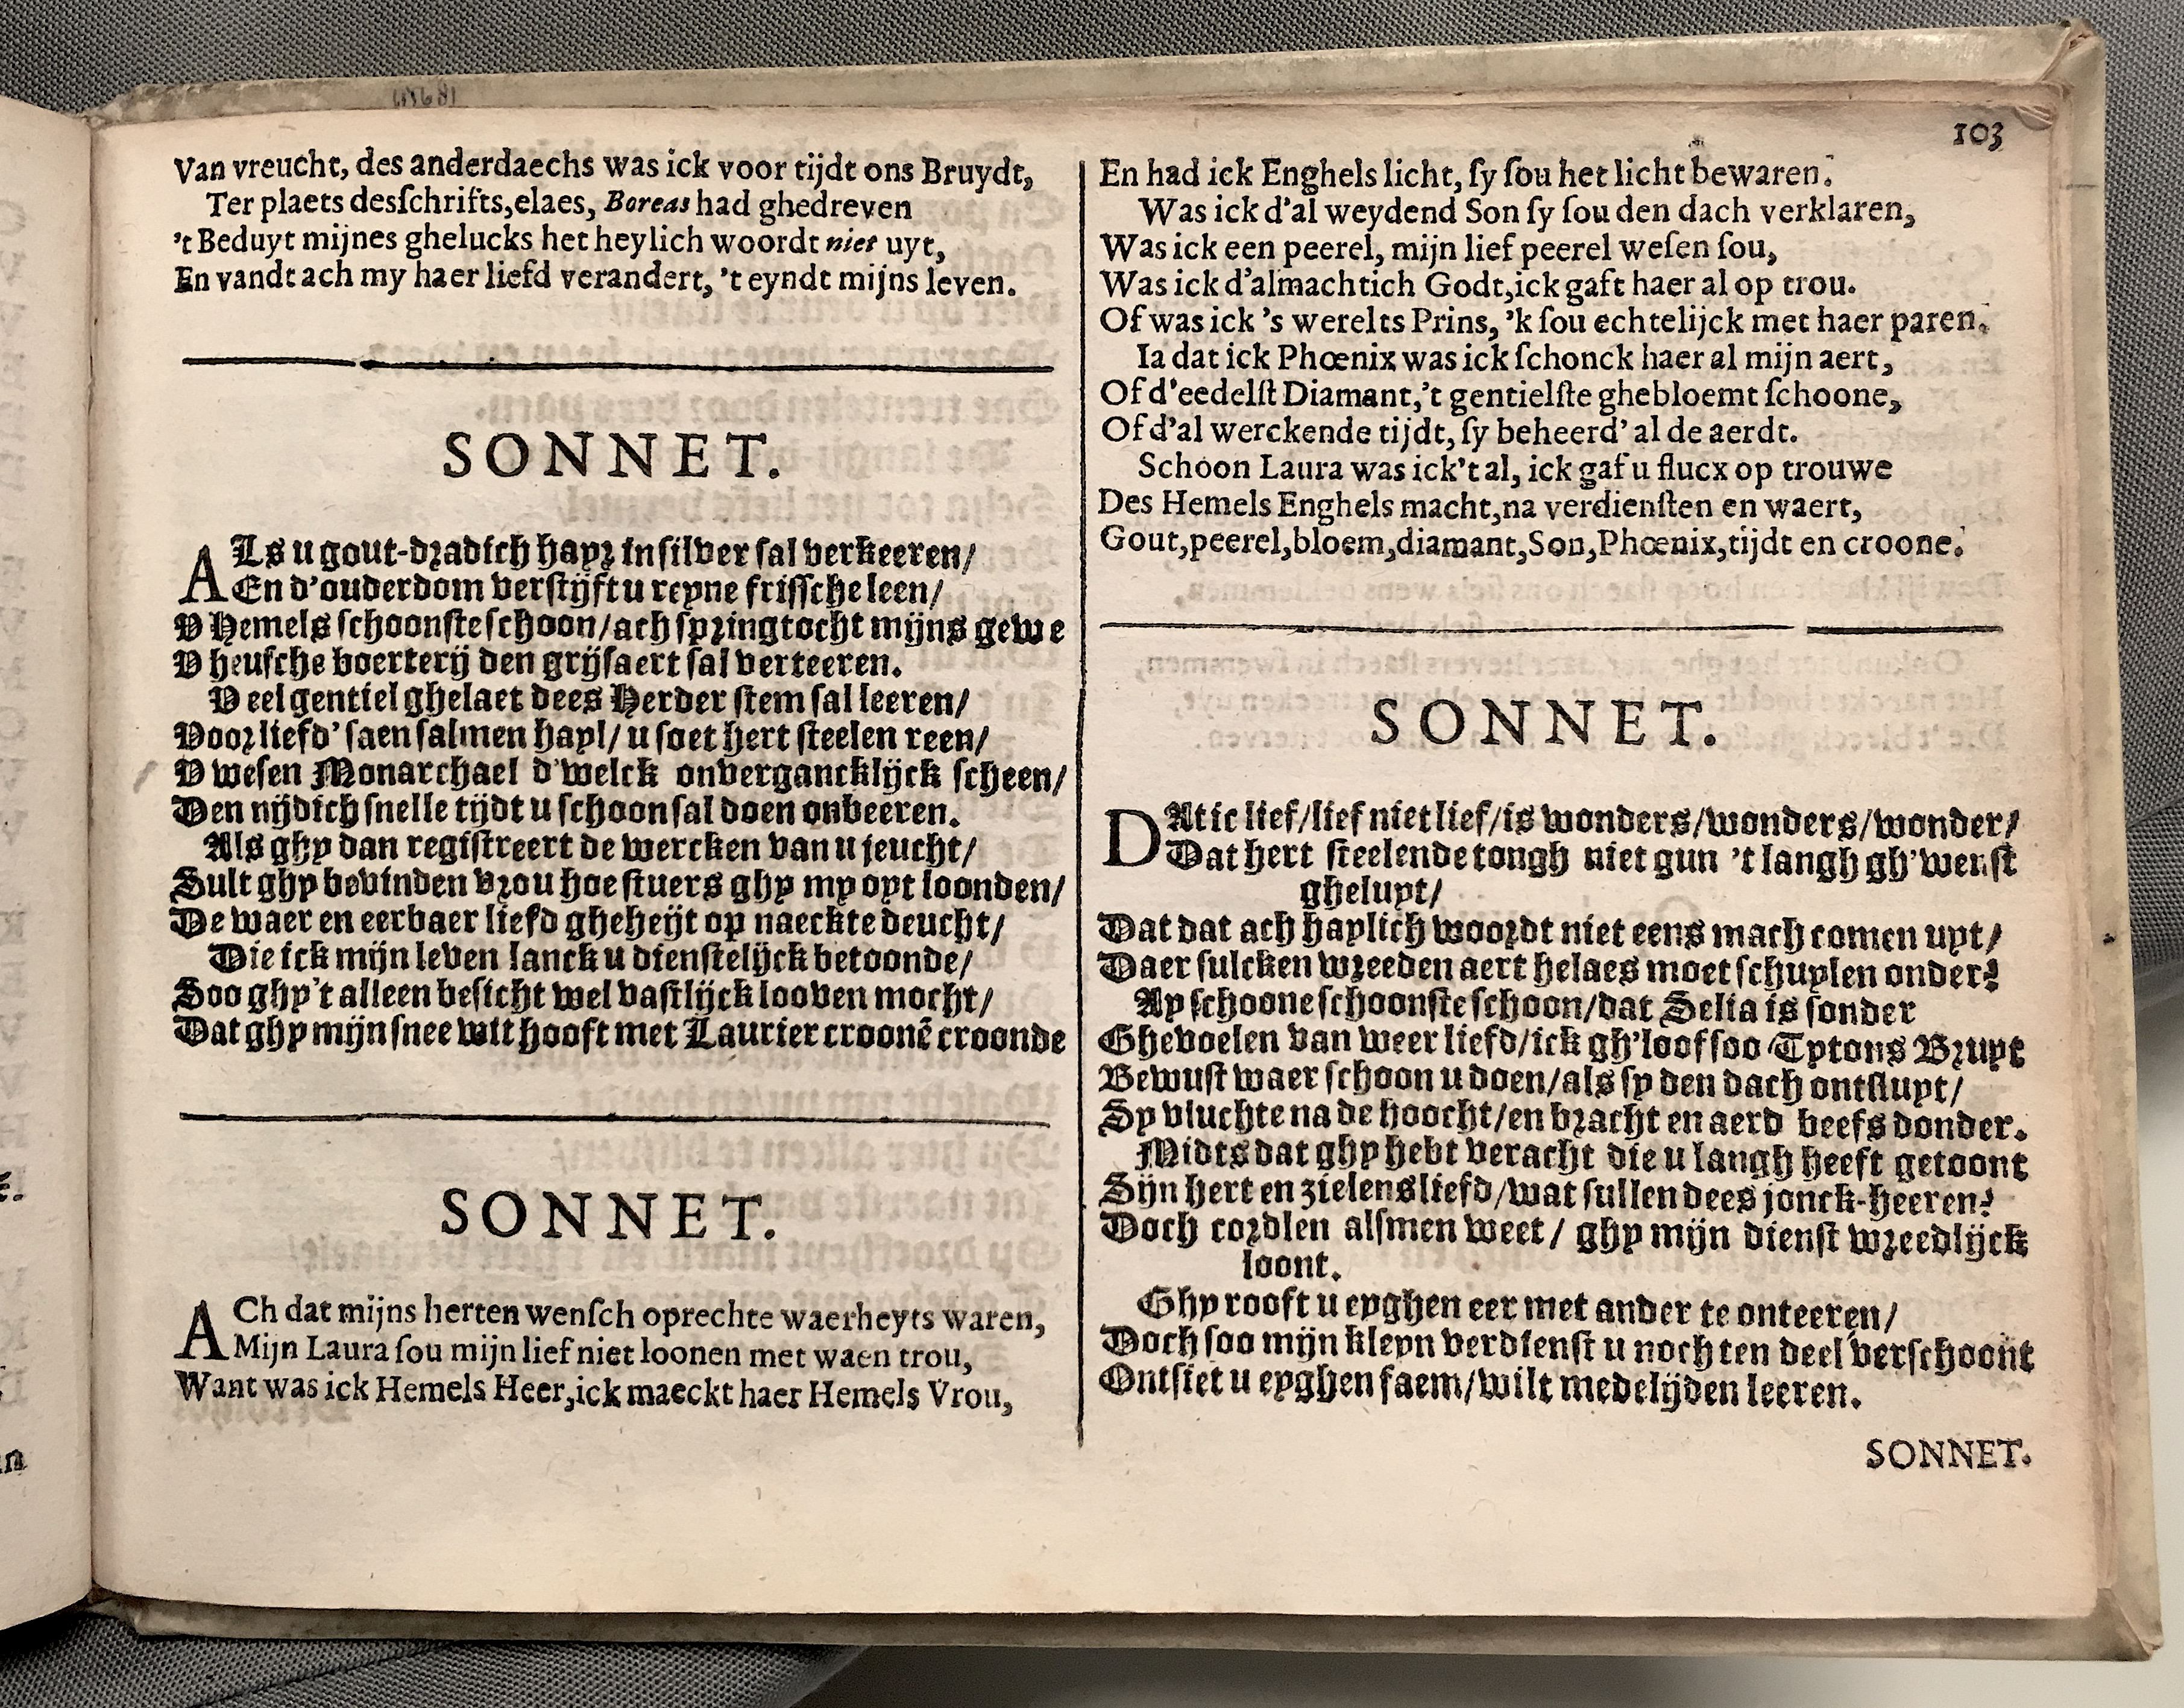 Van vreucht, des anderdaechs was ick voor tijdt ons Bruydt,
Ter plaets desſchrifts,elaes, Boreas had ghedreven
't Beduyt mijnes ghelucks het heylich woordt niet uyt,
En vandt ach my haer liefd verandert, 't eyndt mijns leven.
SONNET.
ALs u gout-dradich hayr in silver sal verkeeren/
En d'ouderdom verstijft u reyne frissche leen/
V Hemels schoonste schoon/ach springtocht mijns gewe
V heusche boerterij den grijsaert sal verteeren.
V eel gentiel ghelaet dees Herder stem sal leeren/
Voor liefd' saen salmen hayl/ u soet hert steelen reen/
V wesen Monarchael d'welck onverganckliĳck scheen/
Den nijdich snelle tijdt u schoon sal doen onbeeren.
Als ghy dan registreert de wercken van u jeucht/
Sult ghy bevinden vrou hoe stuers ghy my oyt loonden/
De waer en eerbaer liefd gheheijt op naeckte deucht/
Die ick mijn leven lanck u dienstelijck betoonde/
Soo ghy't alleen besicht wel vastlijck looven mocht/
Dat ghy mijn snee wit hooft met Laurier croonē croonde
SONNET.
ACh dat mijns herten wenſch oprechte waerheyts waren,
Mijn Laura ſou mijn lief niet loonen met waen trou,
Want was ick Hemels Heer,ick maeckt haer Hemels Vrou,
103
En had ick Enghels licht, ſy ſou het licht bewaren.
Was ick d'al weydend Son ſy ſou den dach verklaren,
Was ick een peerel, mijn lief peerel weſen ſou,
Was ick d'almachtich Godt,ick gaft haer al op trou.
Of was ick 's werelts Prins, 'k ſou echtelijck met haer paren.
Ia dat ick Phœnix was ick ſchonck haer al mijn aert,
Of d'eedelſt Diamant,'t gentielſte ghebloemt ſchoone,
Of d'al werckende tijdt, ſy beheerd' al de aerdt.
Schoon Laura was ick't al, ick gaf u flucx op trouwe
Des Hemels Enghels macht,na verdienſten en waert,
Gout,peerel,bloem,diamant,Son,Phœnix,tijdt en croone.
SONNET.
DAt ic lief/lief niet lief/is wonders/wonders/wonder/
Dat hert steelende tongh niet gun 't langh gh'wenst
gheluyt/
Dat dat ach haylich woordt niet eens mach comen uyt/
Daer sulcken wreeden aert helaes moet schuylen onder?
Ay schoone schoonste schoon/dat Selia is sonder
Ghevoelen van weer liefd/ick gh'loof soo Tytons Bruyt
Bewust waer schoon u doen/als sy den dach ontsluyt/
Sy vluchte na de hoocht/en bracht en aerd beefs donder.
Midts dat ghy hebt veracht die u langh heeft getoont
Sijn hert en zielens liefd/wat sullen dees jonck-heeren?
Doch cordlen alsmen weet/ ghy mijn dienst wreedlijck
loont.
Ghy rooft u eyghen eer met ander te onteeren/
Doch soo mijn kleyn verdienst u noch ten deel verschoont
Ontsiet u eyghen faem/wilt medelijden leeren.
SONNET.